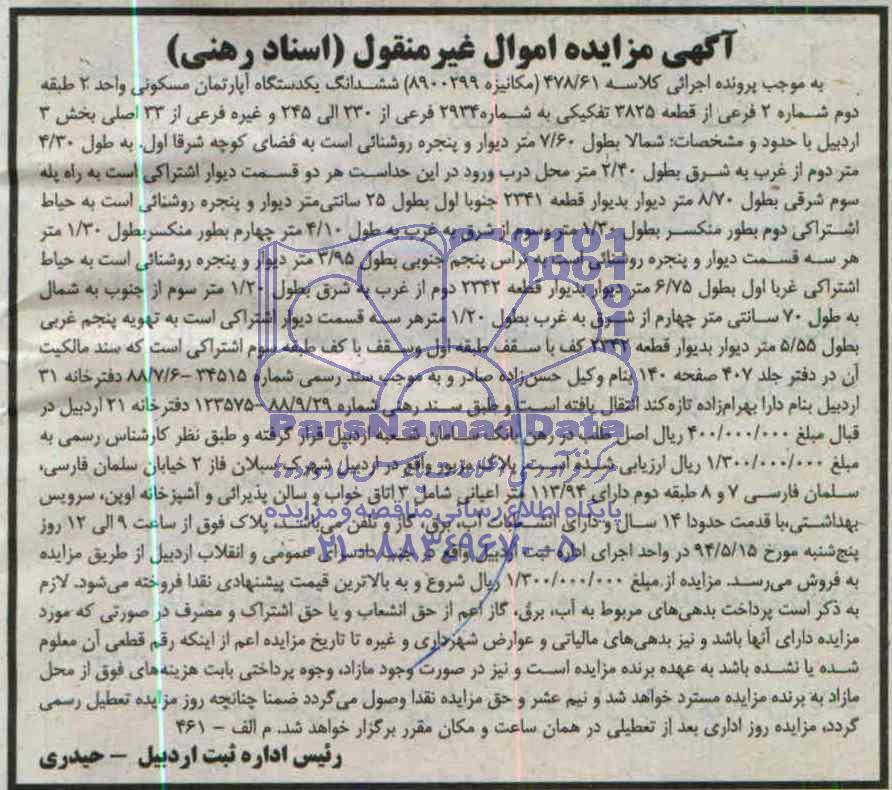 آگهی مزایده اموال غیرمنقول (اسناد رهنی)
به موجب پرونده اجرائی کلاسه ۴۷۸/۶۱ (مکانیزه ۸۹۰۰۲۹۹) ششدانگ یکدستگاه آپارتمان مسکونی واحد ۲ طبقه
دوم شماره ۲ فرعی از قطعه ۳۸۲۵ تفکیکی به شماره ۲۹۳۴ فرعی از ۲۳۰ الی ۲۴۵ و غیره فرعی از ۳۳ اصلی بخش ۳
اردبیل با حدود و مشخصات: شمالا بطول ۷/۶۰ متر دیوار و پنجره روشنائی است به فضای کوچه شرقا اول، به طول ۴/۳۰
متر دوم از غرب به شرق بطول ۲/۴۰ متر محل درب ورود در این حداست هر دو قسمت دیوار اشتراکی است به راه پله
سوم شرقی بطول ۸/۷۰ متر دیوار بدیوار قطعه ۲۳۴۱ جنوبا اول بطول ۲۵ سانتی‌متر دیوار و پنجره روشنائی است به حیاط
اشتراکی دوم بطور منکسر بطول ۱/۳۰ متر وسوم از شرق به غرب به طول ۴/۱۰ متر چهارم بطور منکسربطول ۱/۳۰ متر
هر سه قسمت دیوار و پنجره روشنائی است به تراس پنجم جنوبی بطول ۳/۹۵ متر دیوار و پنجره روشنائی است به حیاط
اشتراکی غربا اول بطول ۶/۷۵ متر دیوار بدیوار قطعه ۲۳۴۲ دوم از غرب به شرق بطول ۱/۲۰ متر سوم از جنوب به شمال
به طول ۷۰ سانتی متر چهارم از شرق به غرب بطول ۱/۲۰ مترهر سه قسمت دیوار اشتراکی است به تهویه پنجم غربی
بطول ۵/۵۵ متر دیوار بدیوار قطعه ۲۳۴۲ کف با سقف طبقه اول وسقف با کف طبقه سوم اشتراکی است که سند مالکیت
آن در دفتر جلد ۴۰۷ صفحه ۱۴۰ بنام وکیل حسن‌زاده صادر و به موجب سند رسمی شماره ۳۴۵۱۵ -۸۸/۷/۶ دفترخانه ۳۱
اردبیل بنام دارا بهرام‌زاده تازه‌کند انتقال یافته است و طبق سند رهنی شماره ۸۸/۹/۲۹ – ۱۲۳۵۷۵ دفترخانه ۲۱ اردبیل در
قبال مبلغ ۴۰۰/۰۰۰/۰۰۰ ریال اصل طلب در رهن بانک سامان شعبه اردبیل قرار گرفته و طبق نظر کارشناس رسمی به
مبلغ ۱/۳۰۰/۰۰۰/۰۰۰ ریال ارزیابی شده است. پلاک مزبور واقع در اردبیل شهرک سبلان فاز ۲ خیابان سلمان فارسی،
سلمان فارسی ۷ و ۸ طبقه دوم دارای ۱۱۳/۹۴ متر اعیانی شامل ۳ اتاق خواب و سالن پذیرائی و آشپزخانه اوپن، سرویس
بهداشتی،با قدمت حدودا ۱۴ سال و دارای انشعابات آب، برق، گاز و تلفن می‌باشد، پلاک فوق از ساعت ۹ الی ۱۲ روز
پنج‌شنبه مورخ ۹۴/۵/۱۵ در واحد اجرای اداره ثبت اردبیل واقع در جنب دادسرای عمومی و انقلاب اردبیل از طریق مزایده
به فروش می‌رسد. مزایده از مبلغ ۱/۳۰۰/۰۰۰/۰۰۰ ریال شروع و به بالاترین قیمت پیشنهادی نقدا فروخته می‌شود. لازم
به ذکر است پرداخت بدهی‌های مربوط به آب، برق، گاز اعم از حق انشعاب و یا حق اشتراک و مصرف در صورتی که مورد
مزایده دارای آنها باشد و نیز بدهی‌های مالیاتی و عوارض شهرداری و غیره تا تاریخ مزایده اعم از اینکه رقم قطعی آن معلوم
شده یا نشده باشد به عهده برنده مزایده است و نیز در صورت وجود مازاد، وجوه پرداختی بابت هزینه‌های فوق از محل
مازاد به برنده مزایده مسترد خواهد شد و نیم عشر و حق مزایده نقدا وصول می‌گردد ضمنا چنانچه روز مزایده تعطیل رسمی
گردد، مزایده روز اداری بعد از تعطیلی در همان ساعت و مکان مقرر برگزار خواهد شد. م الف – ۴۶۱
رئیس اداره ثبت اردبیل – حیدری
ParsNamadData
پایگاه اطلاع رسانی مناقصه و مزایده
۰۲۱-۸۸۳۴۹۶۷۰-۵